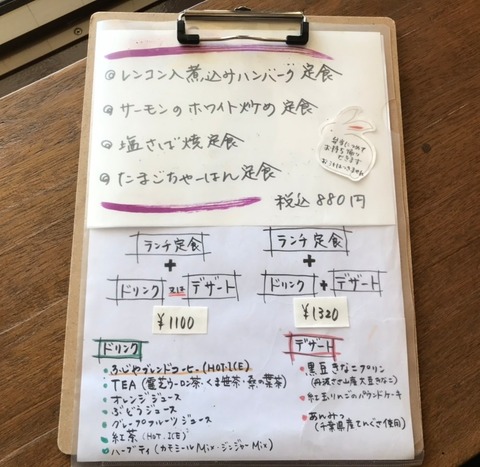 ◎レンコン入煮込みハンバーグ定食
◎サーモンのホワイト炒め定食
◎塩さば焼定食
◎たまごちゃーはん定食
お持ち帰り
できます
税込880円
ランチ定食
+
ドリンク 又は デザート
¥1100
ランチ定食
+
ドリンク + デザート
¥1320
ドリンク
・ふじやブレンドコーヒー(HOT.ICE)
・TEA(電芝ウーロン茶・くま笹茶・桑の葉茶)
・オレンジジュース
・ぶどうジュース
・グレープフルーツジュース
・紅茶(HOT.ICE)
・ハーブティ(カモミールMix・ジンジャーMix)
デザート
・黒豆きなこプリン
(丹波ささ山産大豆きなこ)
・紅玉りんごのパウンドケーキ
・あんみつ
(千葉県産てんぐさ使用)